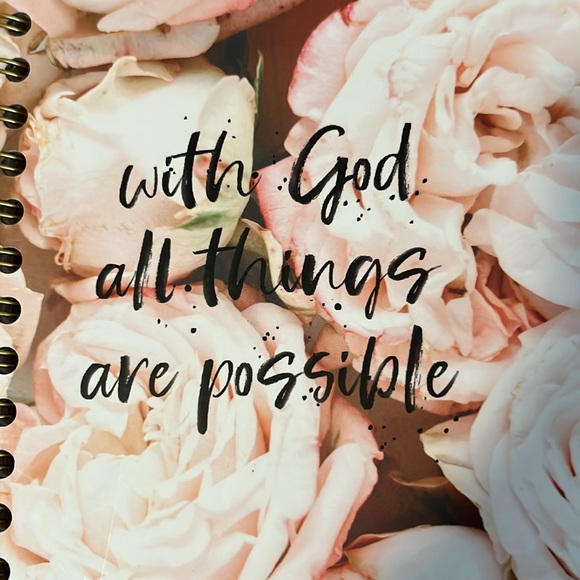 with God
all things
are possible